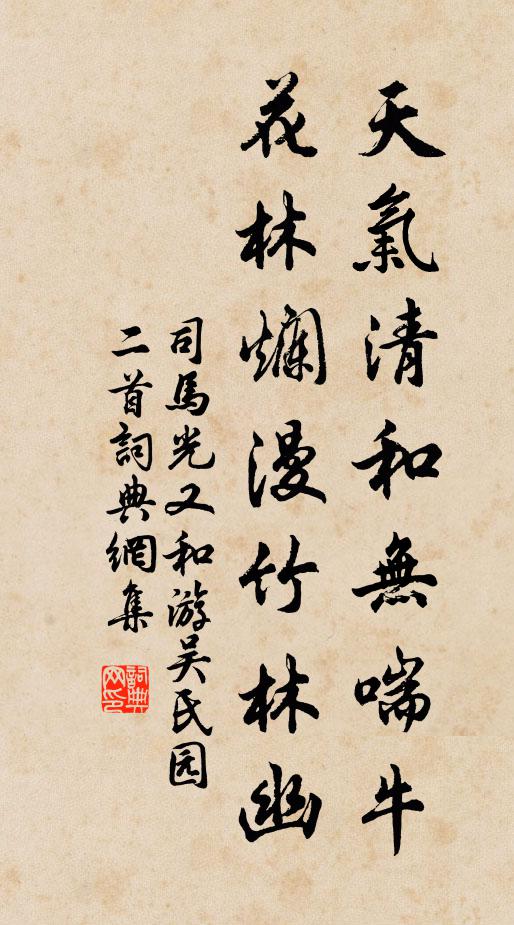 天氣清和無喘牛
花林爛漫竹林幽
司馬光又和游吴氏园
二首詞典網集
詞典
网印